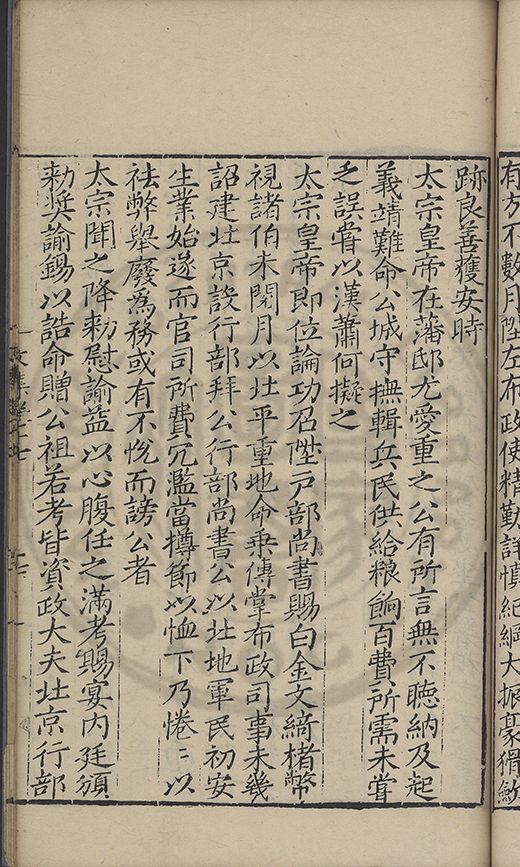 有方不數月陞左布政使精勤詳慎紀綱大振豪猾斂
跡良善獲安時
太宗皇帝在藩邸尤愛重之公有所言無不聴納及起
義靖難命公城守撫輯兵民供給粮餉百費所需未甞
乏誤甞以漢蕭何擬之
太宗皇帝即位論功召陞戸部尚書賜白金文綺楮幣
視諸伯未閱月以北平重地命乗傳掌布政司事未幾
詔建北京設行部拜公行部尚書公以北地軍民初安
生業始遂而官司所費冗濫當樽節以恤下乃惓〻以
祛弊舉廢為務或有不悅而謗公者
太宗聞之降勑慰諭益以心腹任之滿考賜宴内廷頒
勑奨諭錫以誥命贈公祖若考皆資政大夫北京行部